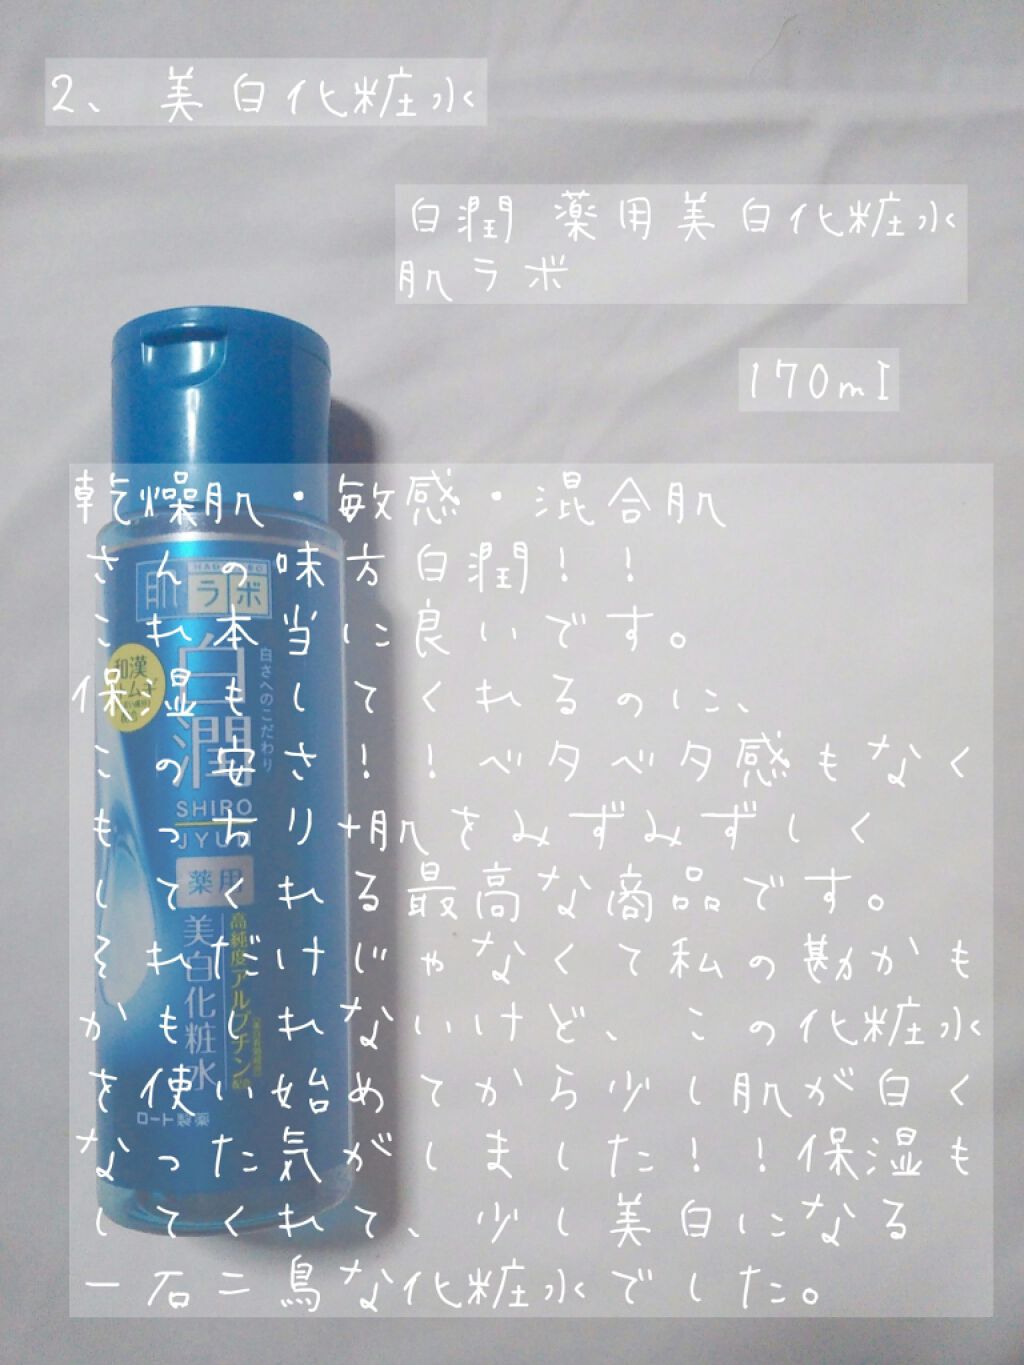 2、美白化粧水
白潤 薬用美白化粧水
肌ラボ
170ml
乾燥肌・敏感・混合肌
さんの味方白潤！！
これ本当に良いです。
保湿もしてくれるのに、
この安さ！！ベタベタ感もなく
もっちり+肌をみずみずしく
してくれる最高な商品です。
それだけじゃなくて私の勘かも
かもしれないけど、この化粧水
を使い始めてから少し肌が白く
なった気がしました！！保湿も
してくれて、少し美白になる
一石二鳥な化粧水でした。
肌ラボ
和漢
白潤
白さへのこだわり
SHIRO
JYUN
薬用
美白化粧水
高純度アルブチン
配合
ロート製薬